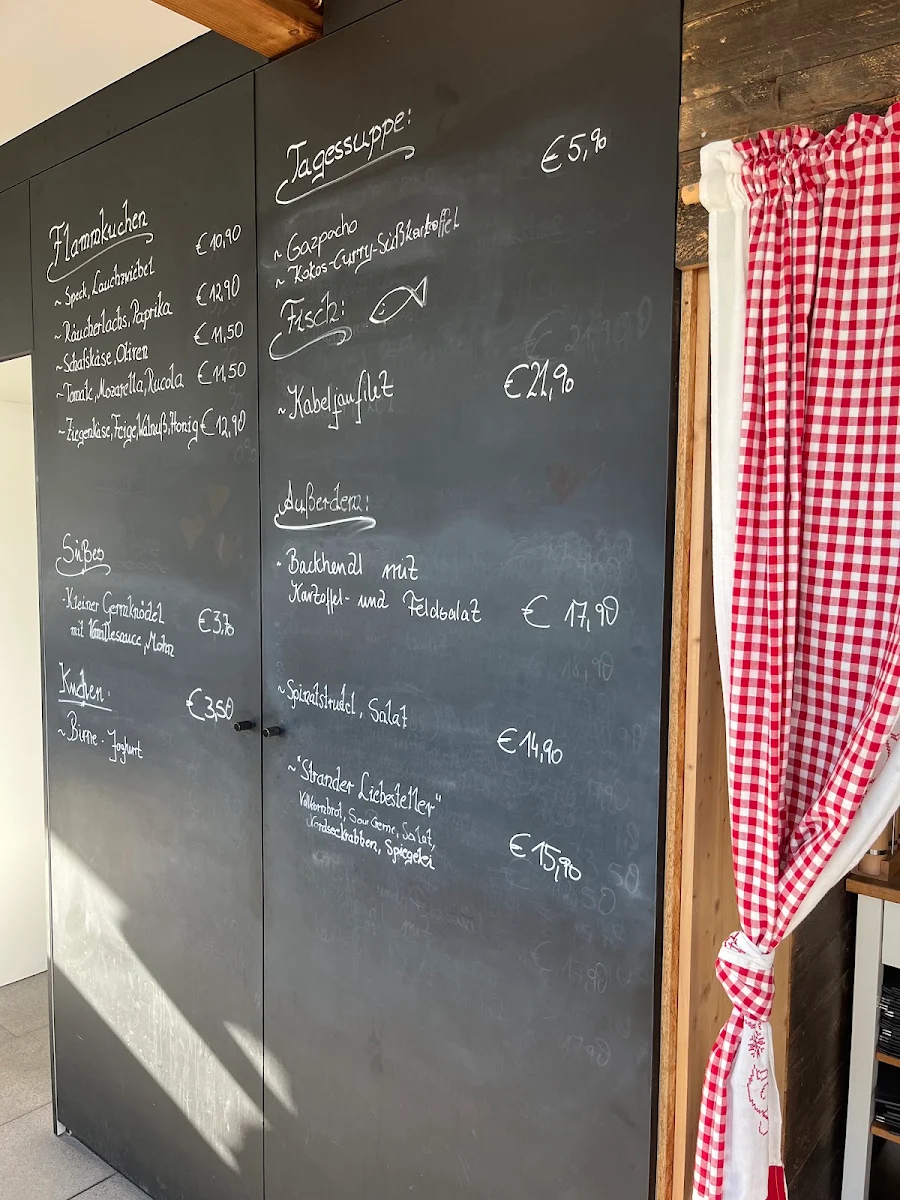 Flammkuchen
~ Speck, Lauchzwiebel €10,90
~ Räucherlachs, Paprika €12,90
~ Schafskäse, Oliven €11,50
~ Tomate, Mozarella, Rucola €11,50
~ Ziegenkäse, Feige, Walnuß, Honig €12,90
Süßes
- Kleiner Germknödel
mit Vanillesauce, Mohn €3,70
Kuchen: €3,50
~ Birne - Joghurt
Tagessuppe: €5,90
~ Gazpacho
~ Kokos-Curry-Süßkartoffel
Fisch:
~ Kabeljaufilet €21,90
Außerdem:
- Backhendl mit
Kartoffel- und Feldsalat € 17,90
~ Spinatstrudel, Salat
€14,90
~ "Strander Liebesteller"
Vollkornbrot, Sour Creme, Salat,
Nordseekrabben, Spiegelei €15,90